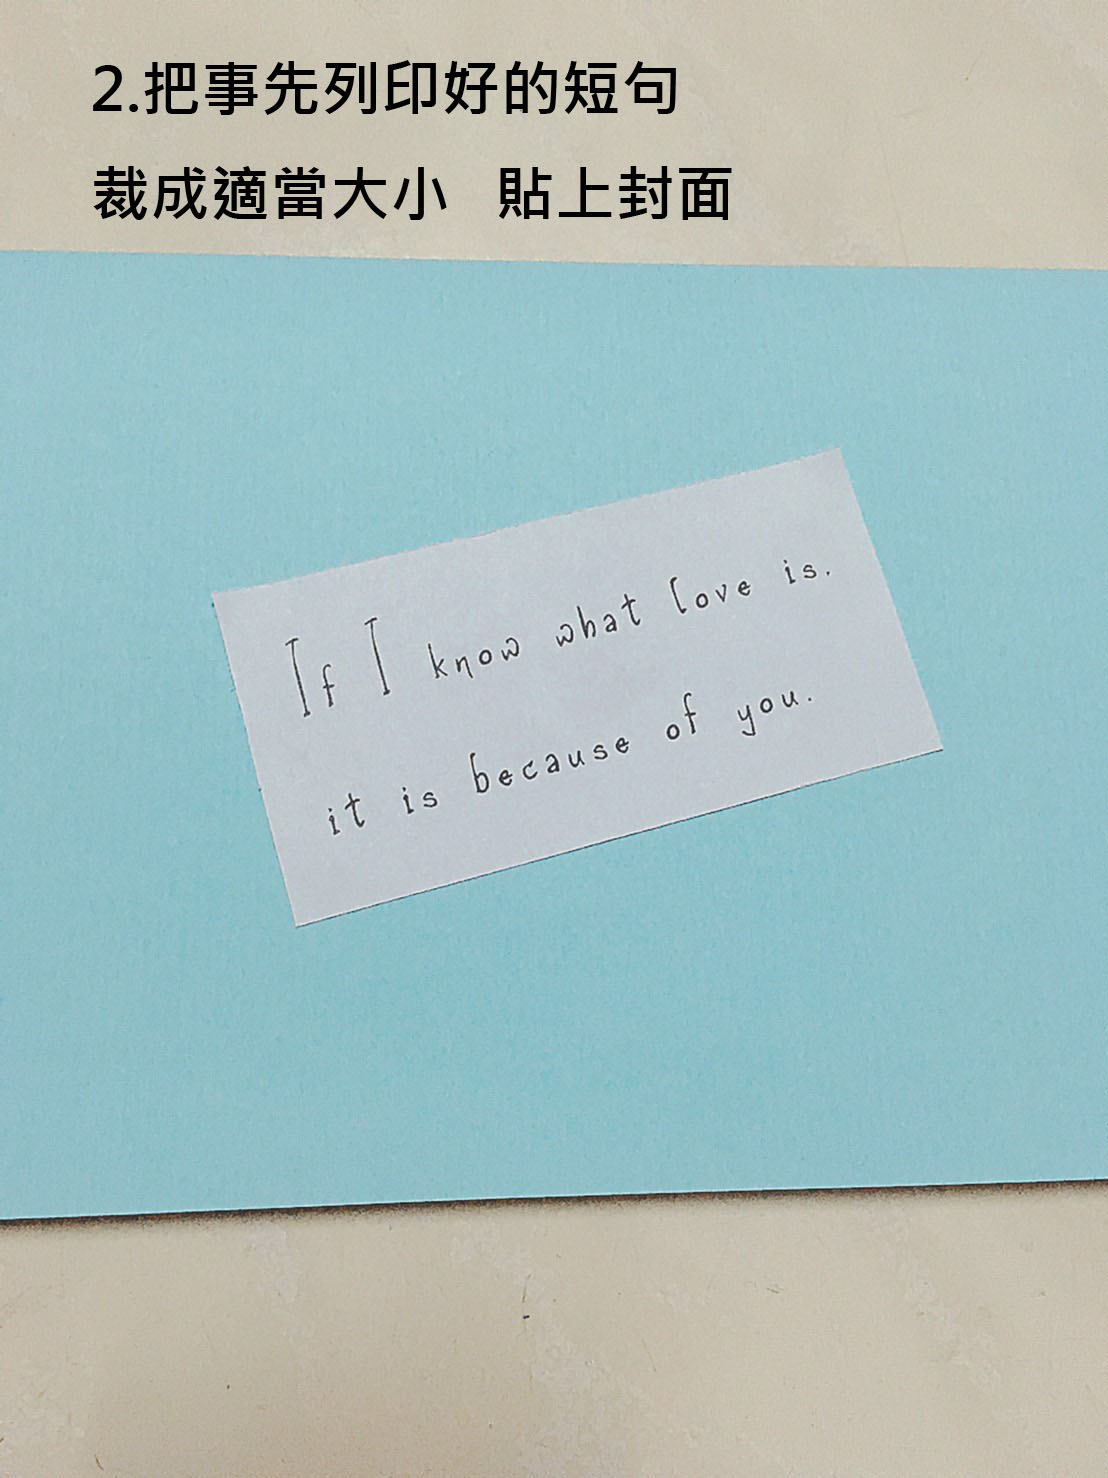 2.把事先列印好的短句
裁成適當大小 貼上封面
If I know what love is.
it is because of you.